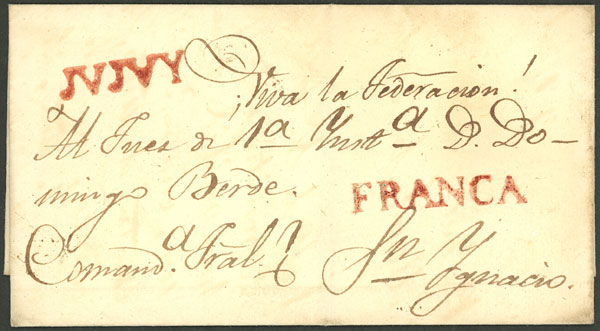 JVJVY
¡Viva la Federacion!
Al Juez de 1a Ynsta D. Do-
mingo Berde.
FRANCA
Comanda Gral
Sn Ygnacio.